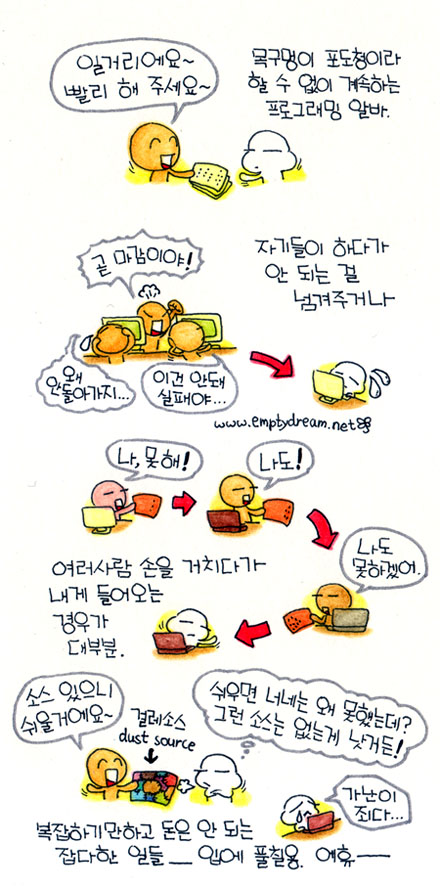 일거리에요~
빨리 해 주세요~
목구멍이 포도청이라
할 수 없이 계속하는
프로그래밍 알바.
곧 마감이야!
자기들이 하다가
안 되는 걸
넘겨주거나
왜
안돌아가지...
이건 안돼
실패야...
www.emptydream.net
나, 못해!
나도!
나도
못하겠어.
여러사람 손을 거치다가
내게 들어오는
경우가
대부분.
소스 있으니
쉬울거에요~
걸레소스
dust source
쉬우면 너네는 왜 못했는데?
그런 소스는 없는게 낫거든!
가난이
죄다...
복잡하기만하고 돈은 안 되는
잡다한 일들 __ 입에 풀칠용. 에휴──